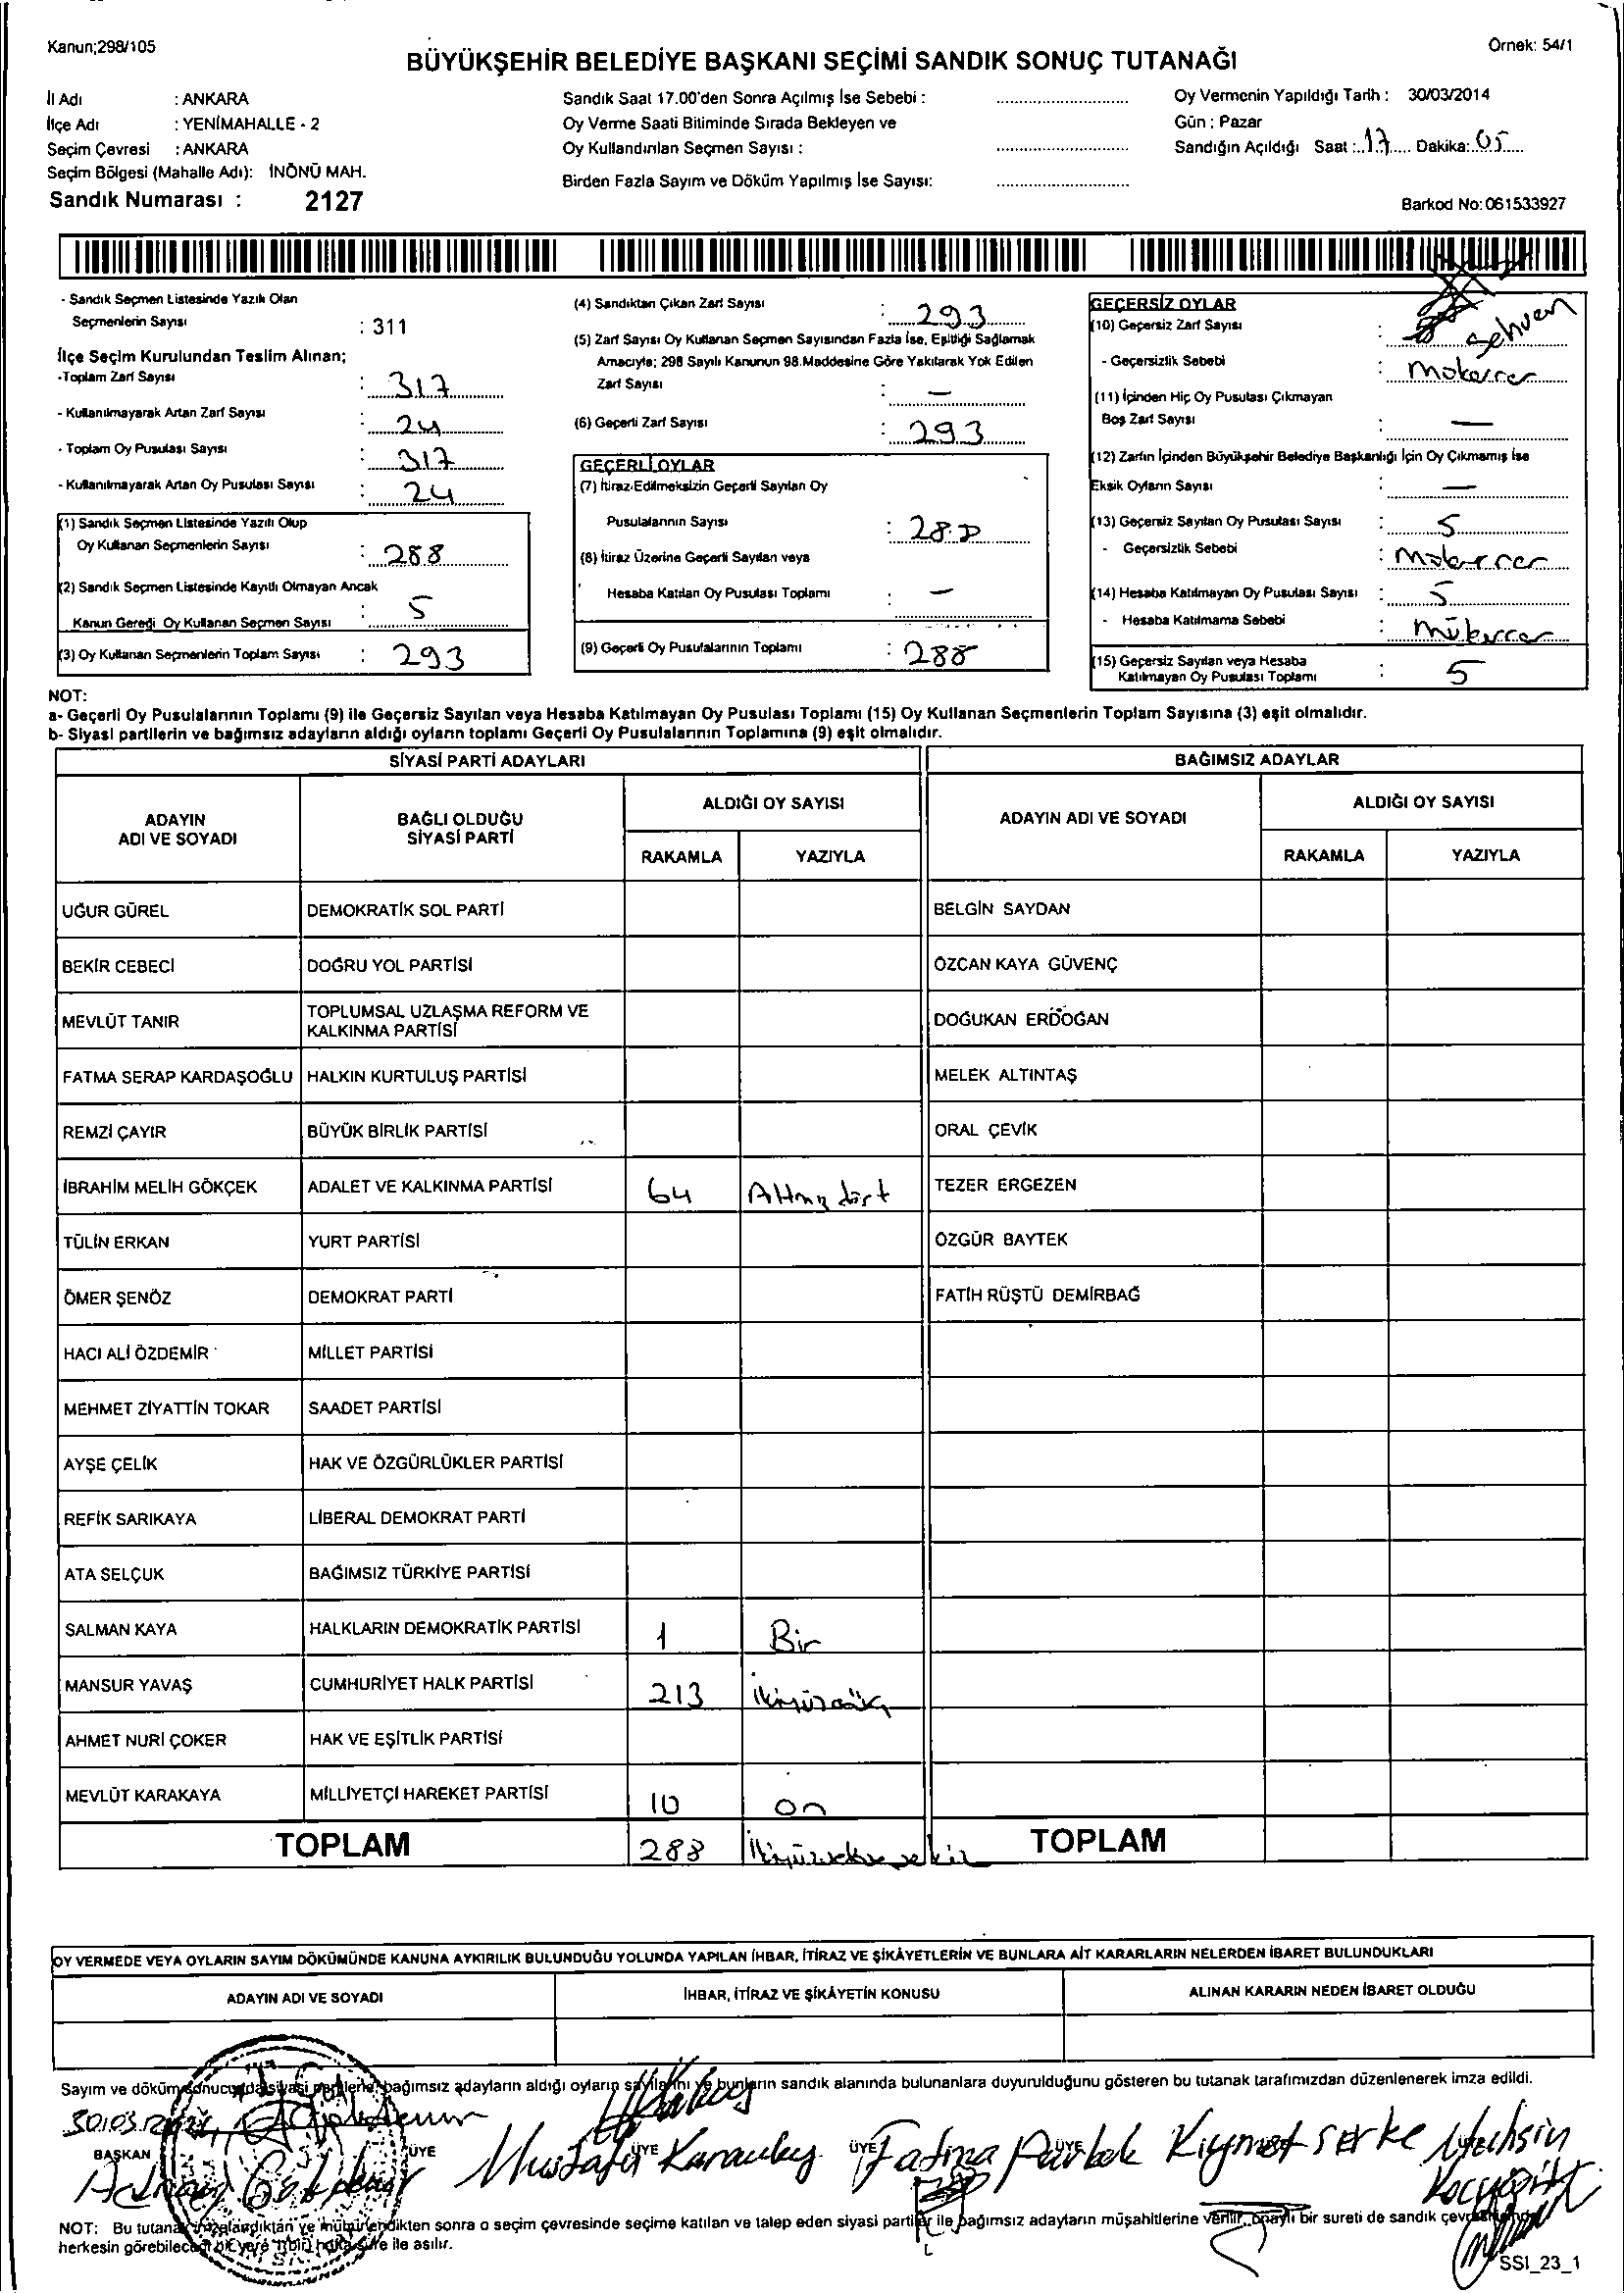 Kanun;298/105
BÜYÜKŞEHİR BELEDİYE BAŞKANI SEÇİMİ SANDIK SONUÇ TUTANAĞI
Örnek: 54/1
İl Adı : ANKARA
İlçe Adı : YENİMAHALLE - 2
Seçim Çevresi : ANKARA
Seçim Bölgesi (Mahalle Adı): İNÖNÜ MAH.
Sandık Numarası : 2127
Sandık Saat 17.00'den Sonra Açılmış İse Sebebi :
Oy Verme Saati Bitiminde Sırada Bekleyen ve
Oy Kullandırılan Seçmen Sayısı :
Birden Fazla Sayım ve Döküm Yapılmış İse Sayısı:
Oy Vermenin Yapıldığı Tarih : 30/03/2014
Gün : Pazar
Sandığın Açıldığı Saat :..17..... Dakika:..05.....
Barkod No: 061533927
- Sandık Seçmen Listesinde Yazılı Olan
Seçmenlerin Sayısı : 311
İlçe Seçim Kurulundan Teslim Alınan;
-Toplam Zarf Sayısı : 317
- Kullanılmayarak Artan Zarf Sayısı : 24
- Toplam Oy Pusulası Sayısı : 317
- Kullanılmayarak Artan Oy Pusulası Sayısı : 24
(1) Sandık Seçmen Listesinde Yazılı Olup
Oy Kullanan Seçmenlerin Sayısı : 288
(2) Sandık Seçmen Listesinde Kayıtlı Olmayan Ancak
Kanun Gereği Oy Kullanan Seçmen Sayısı : 5
(3) Oy Kullanan Seçmenlerin Toplam Sayısı : 293
(4) Sandıktan Çıkan Zarf Sayısı : 293
(5) Zarf Sayısı Oy Kullanan Seçmen Sayısından Fazla İse, Eşitliği Sağlamak
Amacıyla; 298 Sayılı Kanunun 98.Maddesine Göre Yakılarak Yok Edilen
Zarf Sayısı : —
(6) Geçerli Zarf Sayısı : 293
GEÇERLİ OYLAR
(7) İtiraz Edilmeksizin Geçerli Sayılan Oy
Pusulalarının Sayısı : 288
(8) İtiraz Üzerine Geçerli Sayılan veya
Hesaba Katılan Oy Pusulası Toplamı : —
(9) Geçerli Oy Pusulalarının Toplamı : 288
GEÇERSİZ OYLAR
(10) Geçersiz Zarf Sayısı : sehven
- Geçersizlik Sebebi : Mokerrer
(11) İçinden Hiç Oy Pusulası Çıkmayan
Boş Zarf Sayısı : —
(12) Zarfın İçinden Büyükşehir Belediye Başkanlığı İçin Oy Çıkmamış İse
Eksik Oyların Sayısı : —
(13) Geçersiz Sayılan Oy Pusulası Sayısı : 5
- Geçersizlik Sebebi : Mokerrer
(14) Hesaba Katılmayan Oy Pusulası Sayısı : 5
- Hesaba Katılmama Sebebi : Mükerrer
(15) Geçersiz Sayılan veya Hesaba
Katılmayan Oy Pusulası Toplamı : 5
NOT:
a- Geçerli Oy Pusulalarının Toplamı (9) ile Geçersiz Sayılan veya Hesaba Katılmayan Oy Pusulası Toplamı (15) Oy Kullanan Seçmenlerin Toplam Sayısına (3) eşit olmalıdır.
b- Siyasi partilerin ve bağımsız adayların aldığı oyların toplamı Geçerli Oy Pusulalarının Toplamına (9) eşit olmalıdır.
SİYASİ PARTİ ADAYLARI BAĞIMSIZ ADAYLAR
ADAYIN ADI VE SOYADI BAĞLI OLDUĞU SİYASİ PARTİ ALDIĞI OY SAYISI ADAYIN ADI VE SOYADI ALDIĞI OY SAYISI
RAKAMLA YAZIYLA RAKAMLA YAZIYLA
UĞUR GÜREL DEMOKRATİK SOL PARTİ BELGİN SAYDAN
BEKİR CEBECİ DOĞRU YOL PARTİSİ ÖZCAN KAYA GÜVENÇ
MEVLÜT TANIR TOPLUMSAL UZLAŞMA REFORM VE KALKINMA PARTİSİ DOĞUKAN ERDOĞAN
FATMA SERAP KARDAŞOĞLU HALKIN KURTULUŞ PARTİSİ MELEK ALTINTAŞ
REMZİ ÇAYIR BÜYÜK BİRLİK PARTİSİ ORAL ÇEVİK
İBRAHİM MELİH GÖKÇEK ADALET VE KALKINMA PARTİSİ 64 Altmış dört TEZER ERGEZEN
TÜLİN ERKAN YURT PARTİSİ ÖZGÜR BAYTEK
ÖMER ŞENÖZ DEMOKRAT PARTİ FATİH RÜŞTÜ DEMİRBAĞ
HACI ALİ ÖZDEMİR MİLLET PARTİSİ
MEHMET ZİYATTİN TOKAR SAADET PARTİSİ
AYŞE ÇELİK HAK VE ÖZGÜRLÜKLER PARTİSİ
REFİK SARIKAYA LİBERAL DEMOKRAT PARTİ
ATA SELÇUK BAĞIMSIZ TÜRKİYE PARTİSİ
SALMAN KAYA HALKLARIN DEMOKRATİK PARTİSİ 1 Bir
MANSUR YAVAŞ CUMHURİYET HALK PARTİSİ 213
AHMET NURİ ÇOKER HAK VE EŞİTLİK PARTİSİ
MEVLÜT KARAKAYA MİLLİYETÇİ HAREKET PARTİSİ 10 on
TOPLAM 288 TOPLAM
OY VERMEDE VEYA OYLARIN SAYIM DÖKÜMÜNDE KANUNA AYKIRILIK BULUNDUĞU YOLUNDA YAPILAN İHBAR, İTİRAZ VE ŞİKÂYETLERİN VE BUNLARA AİT KARARLARIN NELERDEN İBARET BULUNDUKLARI
ADAYIN ADI VE SOYADI İHBAR, İTİRAZ VE ŞİKÂYETİN KONUSU ALINAN KARARIN NEDEN İBARET OLDUĞU
Sayım ve döküm sonucunda siyasi partilerle bağımsız adayların aldığı oyların sayılarını ve bunların sandık alanında bulunanlara duyurulduğunu gösteren bu tutanak tarafımızdan düzenlenerek imza edildi.
30.03.2014
BAŞKAN ÜYE ÜYE ÜYE ÜYE ÜYE
Adnan Mustafa Fatma Kıymet Serke Muhsin
NOT: Bu tutanak imzalandıktan ve mühürlendikten sonra o seçim çevresinde seçime katılan ve talep eden siyasi partiler ile bağımsız adayların müşahitlerine verilir, onaylı bir sureti de sandık çevresinde
herkesin görebileceği bir yere 1(bir) hafta süre ile asılır.
SSI_23_1